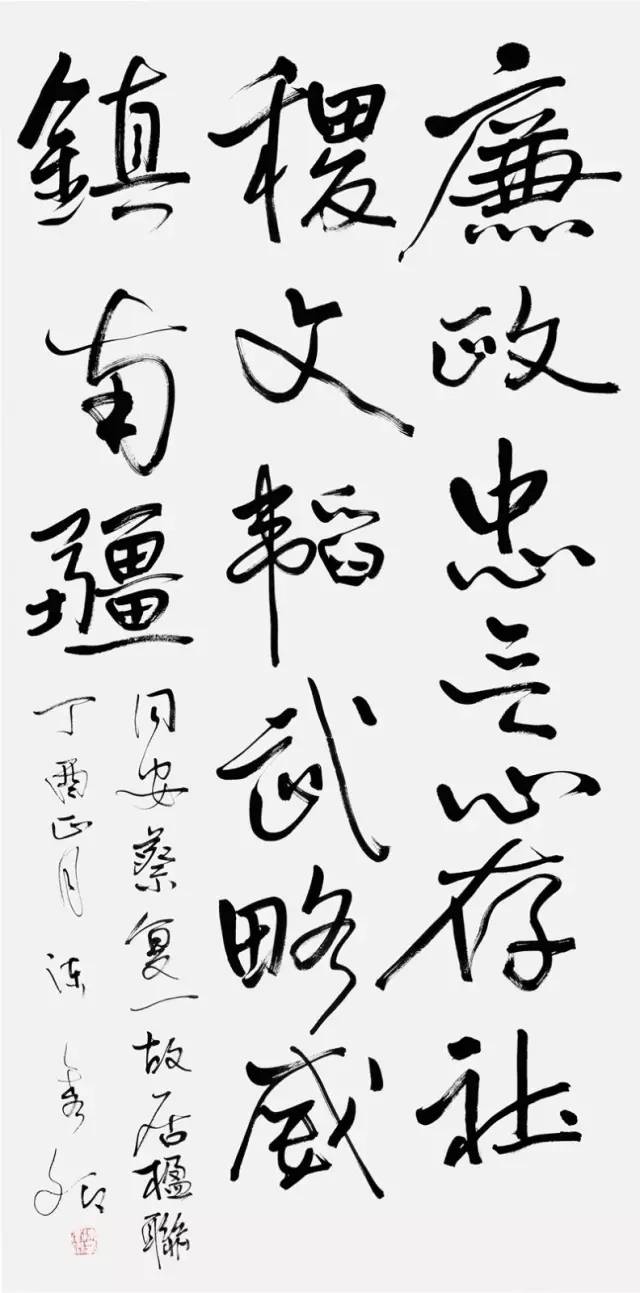 廉政忠言心存社
稷文韬武略威
鎮南疆
同安蔡复一故居楹聯
丁酉正月陈秀卿